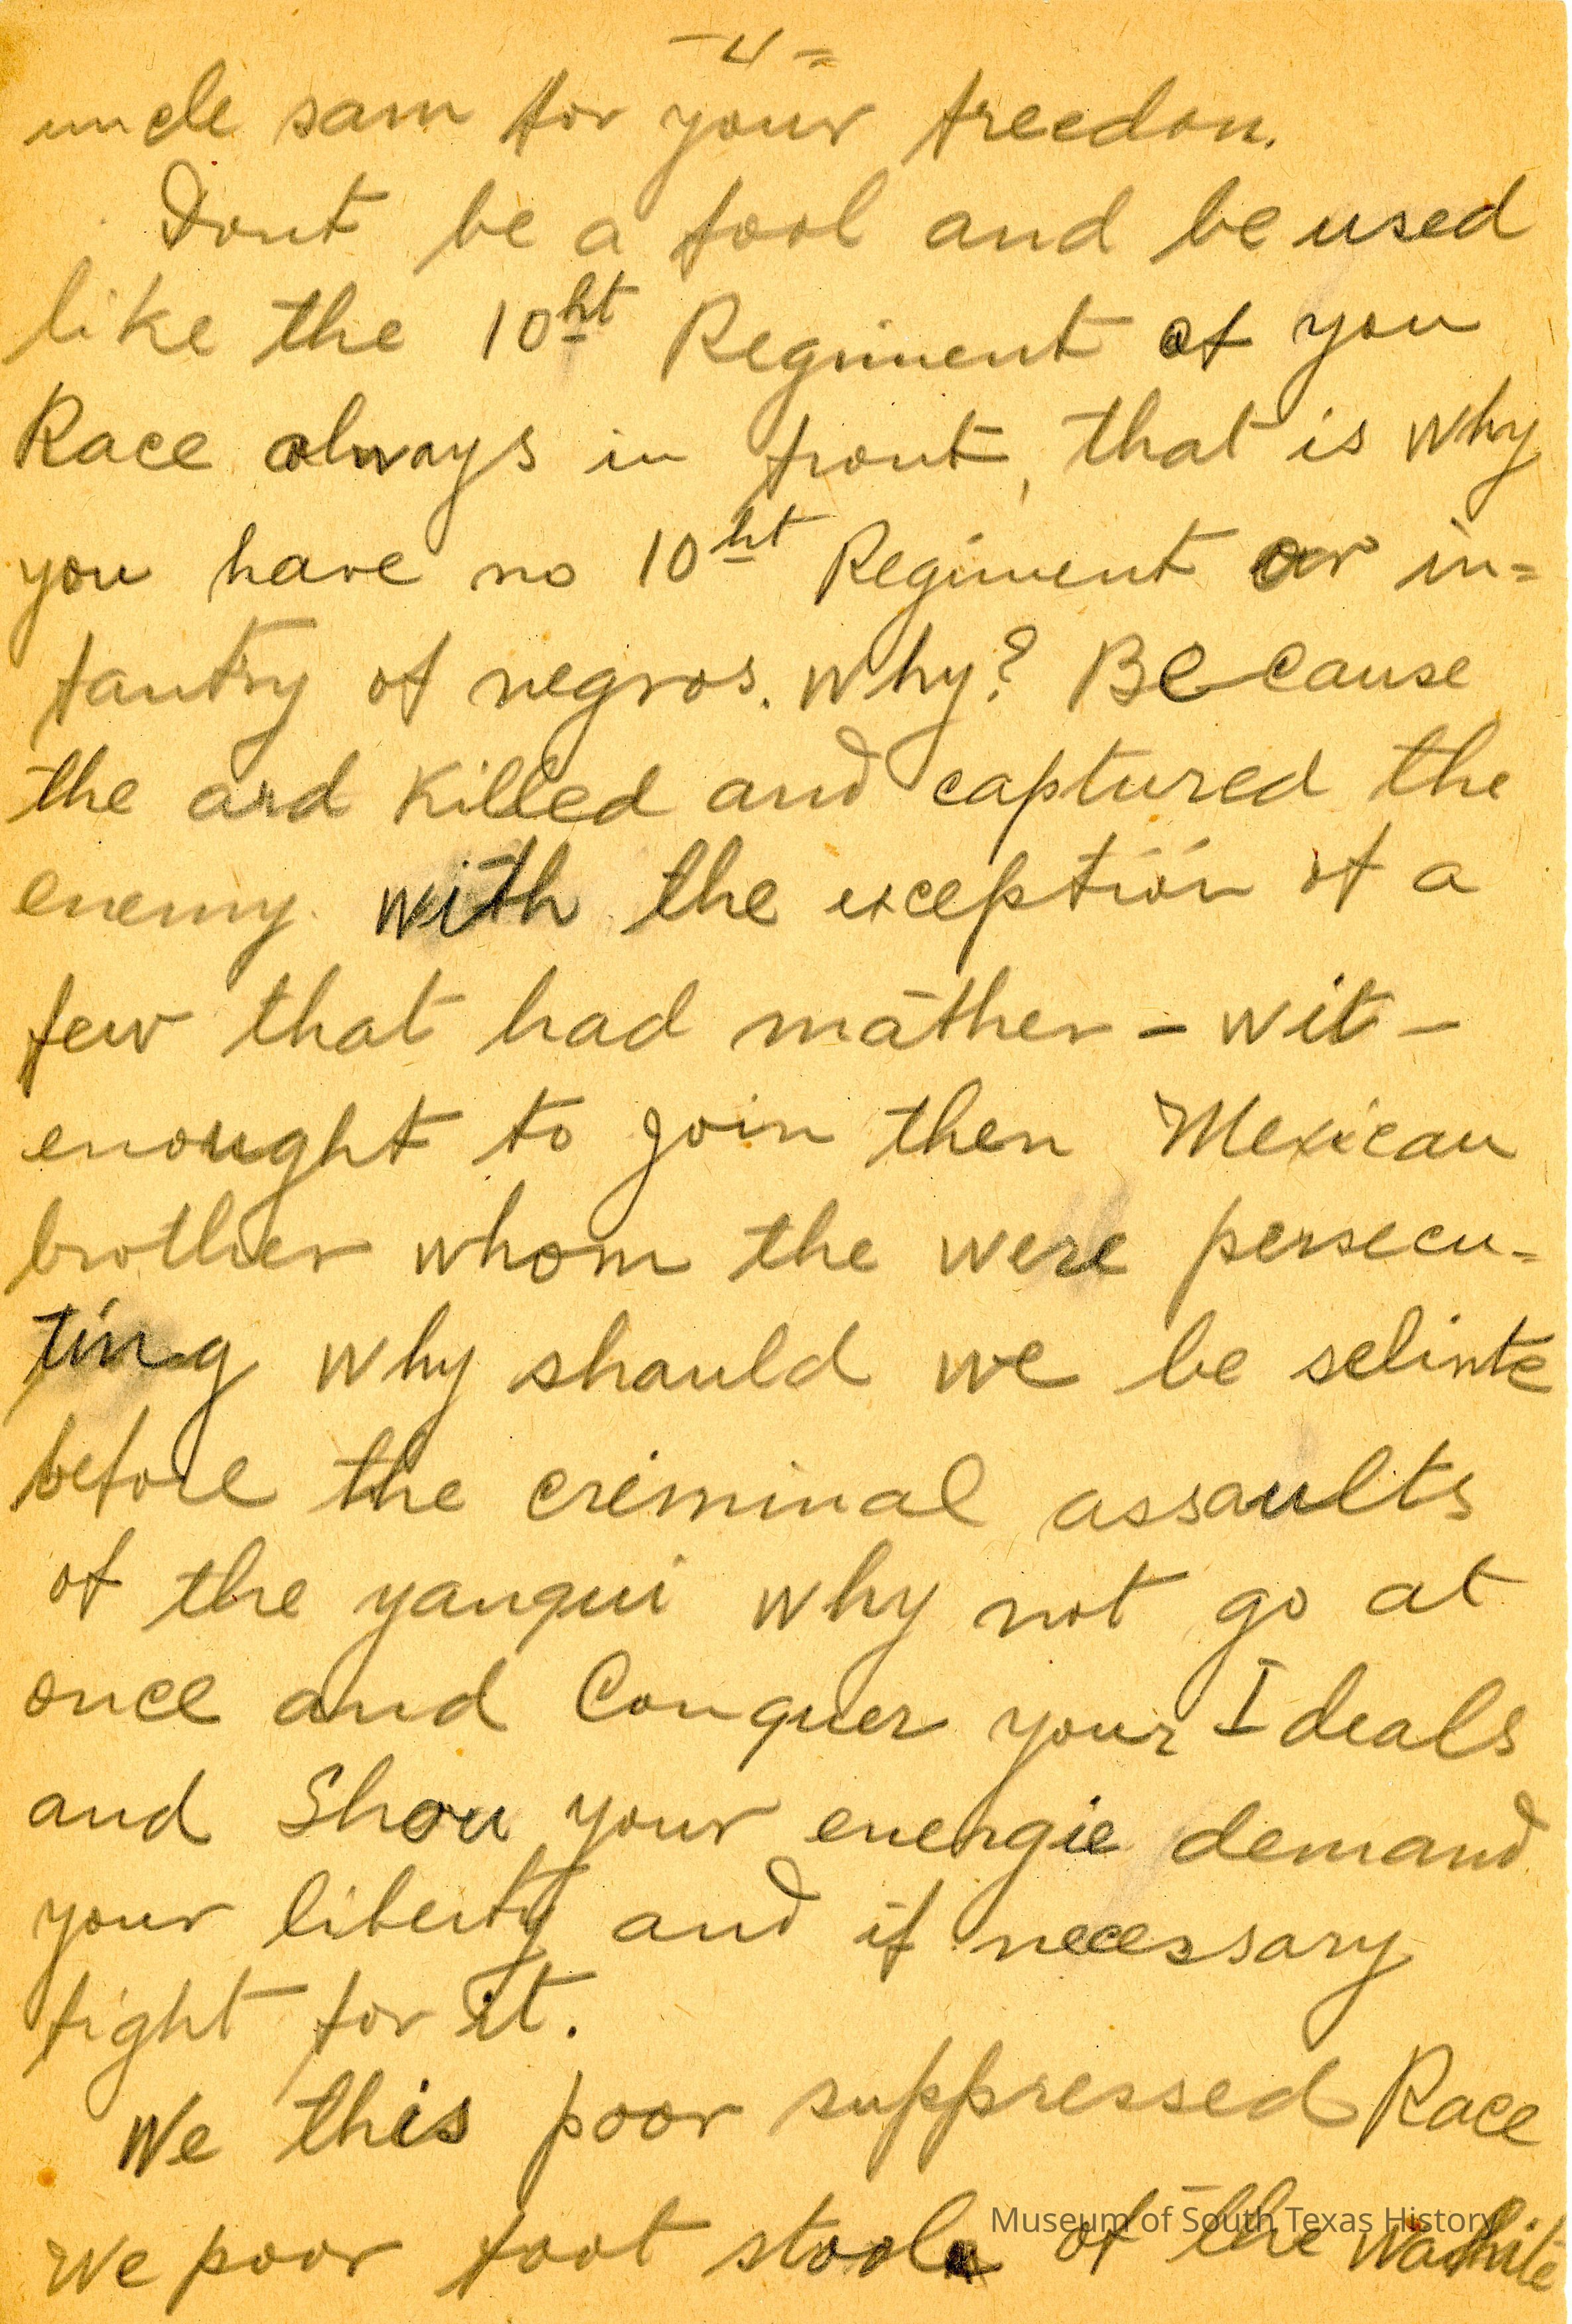 -4-
uncle sam for your freedon.
Dont be a fool and be used
like the 10ht Regiment of you
Race always in front, that is why
you have no 10ht Regiment or in=
fantry of negros. Why? BEcause
the ard killed and captured the
enemy. with the exception of a
few that had mather - wit -
enought to join then Mexican
brother whom the were persecu-
ting why should we be selinte
before the criminal assaults
of the yanqui why not go at
once and Conquer your Ideals
and Shou your energie demand
your liberty and if necessary
fight for it.
We this poor suppressed Race
We poor foot stool of the white
Museum of South Texas History